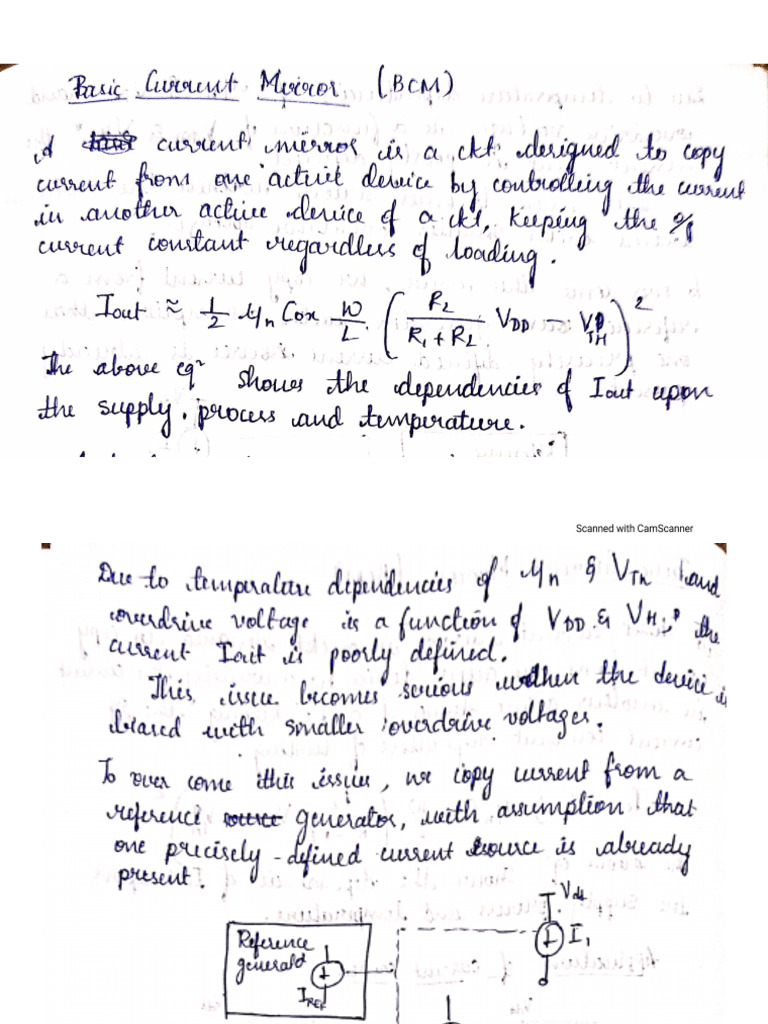 Basic Current Mirror (BCM)
A current mirror is a ckt designed to copy
current from one activt device by controlling the current
in another active device of a ckt, keeping the o/p
current constant regardless of loading.
Iout ≈ 1/2 μn Cox W/L (R2/(R1+R2) VDD − VTH)^2
The above eqn shows the dependencies of Iout upon
the supply, process and temperature.
Scanned with CamScanner
Due to temperature dependencies of μn & VTh and
overdrive voltage is a function of VDD & VH, the
current Iout is poorly defined.
This issue becomes serious when the device is
biased with smaller overdrive voltages.
To over come this issue, we copy current from a
reference generator, with assumption that
one precisely-defined current source is already
present.
Vdd
I1
Reference
IREF